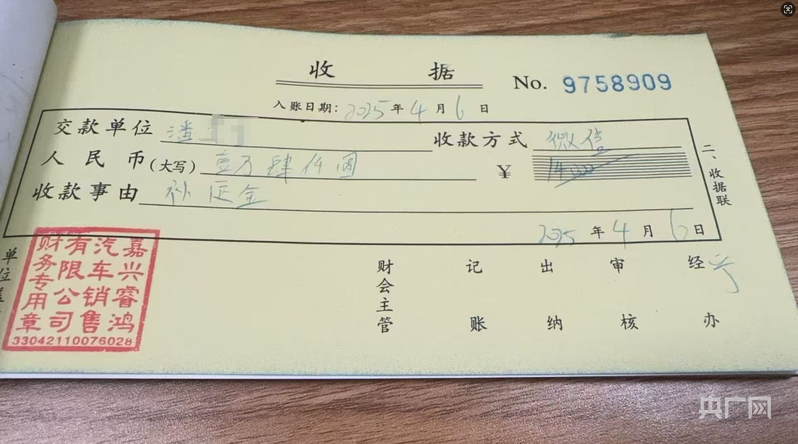 收 据
No. 9758909
入账日期: 2025 年 4 月 6 日
交款单位 潘 收款方式 微信
人民币(大写) 壹万肆仟圆 ¥ 14000
收款事由 补定金
二、收据联
2025 年 4 月 6 日
财会主管 记账 出纳 审核 经办
单位
嘉兴睿鸿
汽车销售
有限公司
财务专用章
33042110076028
央广网